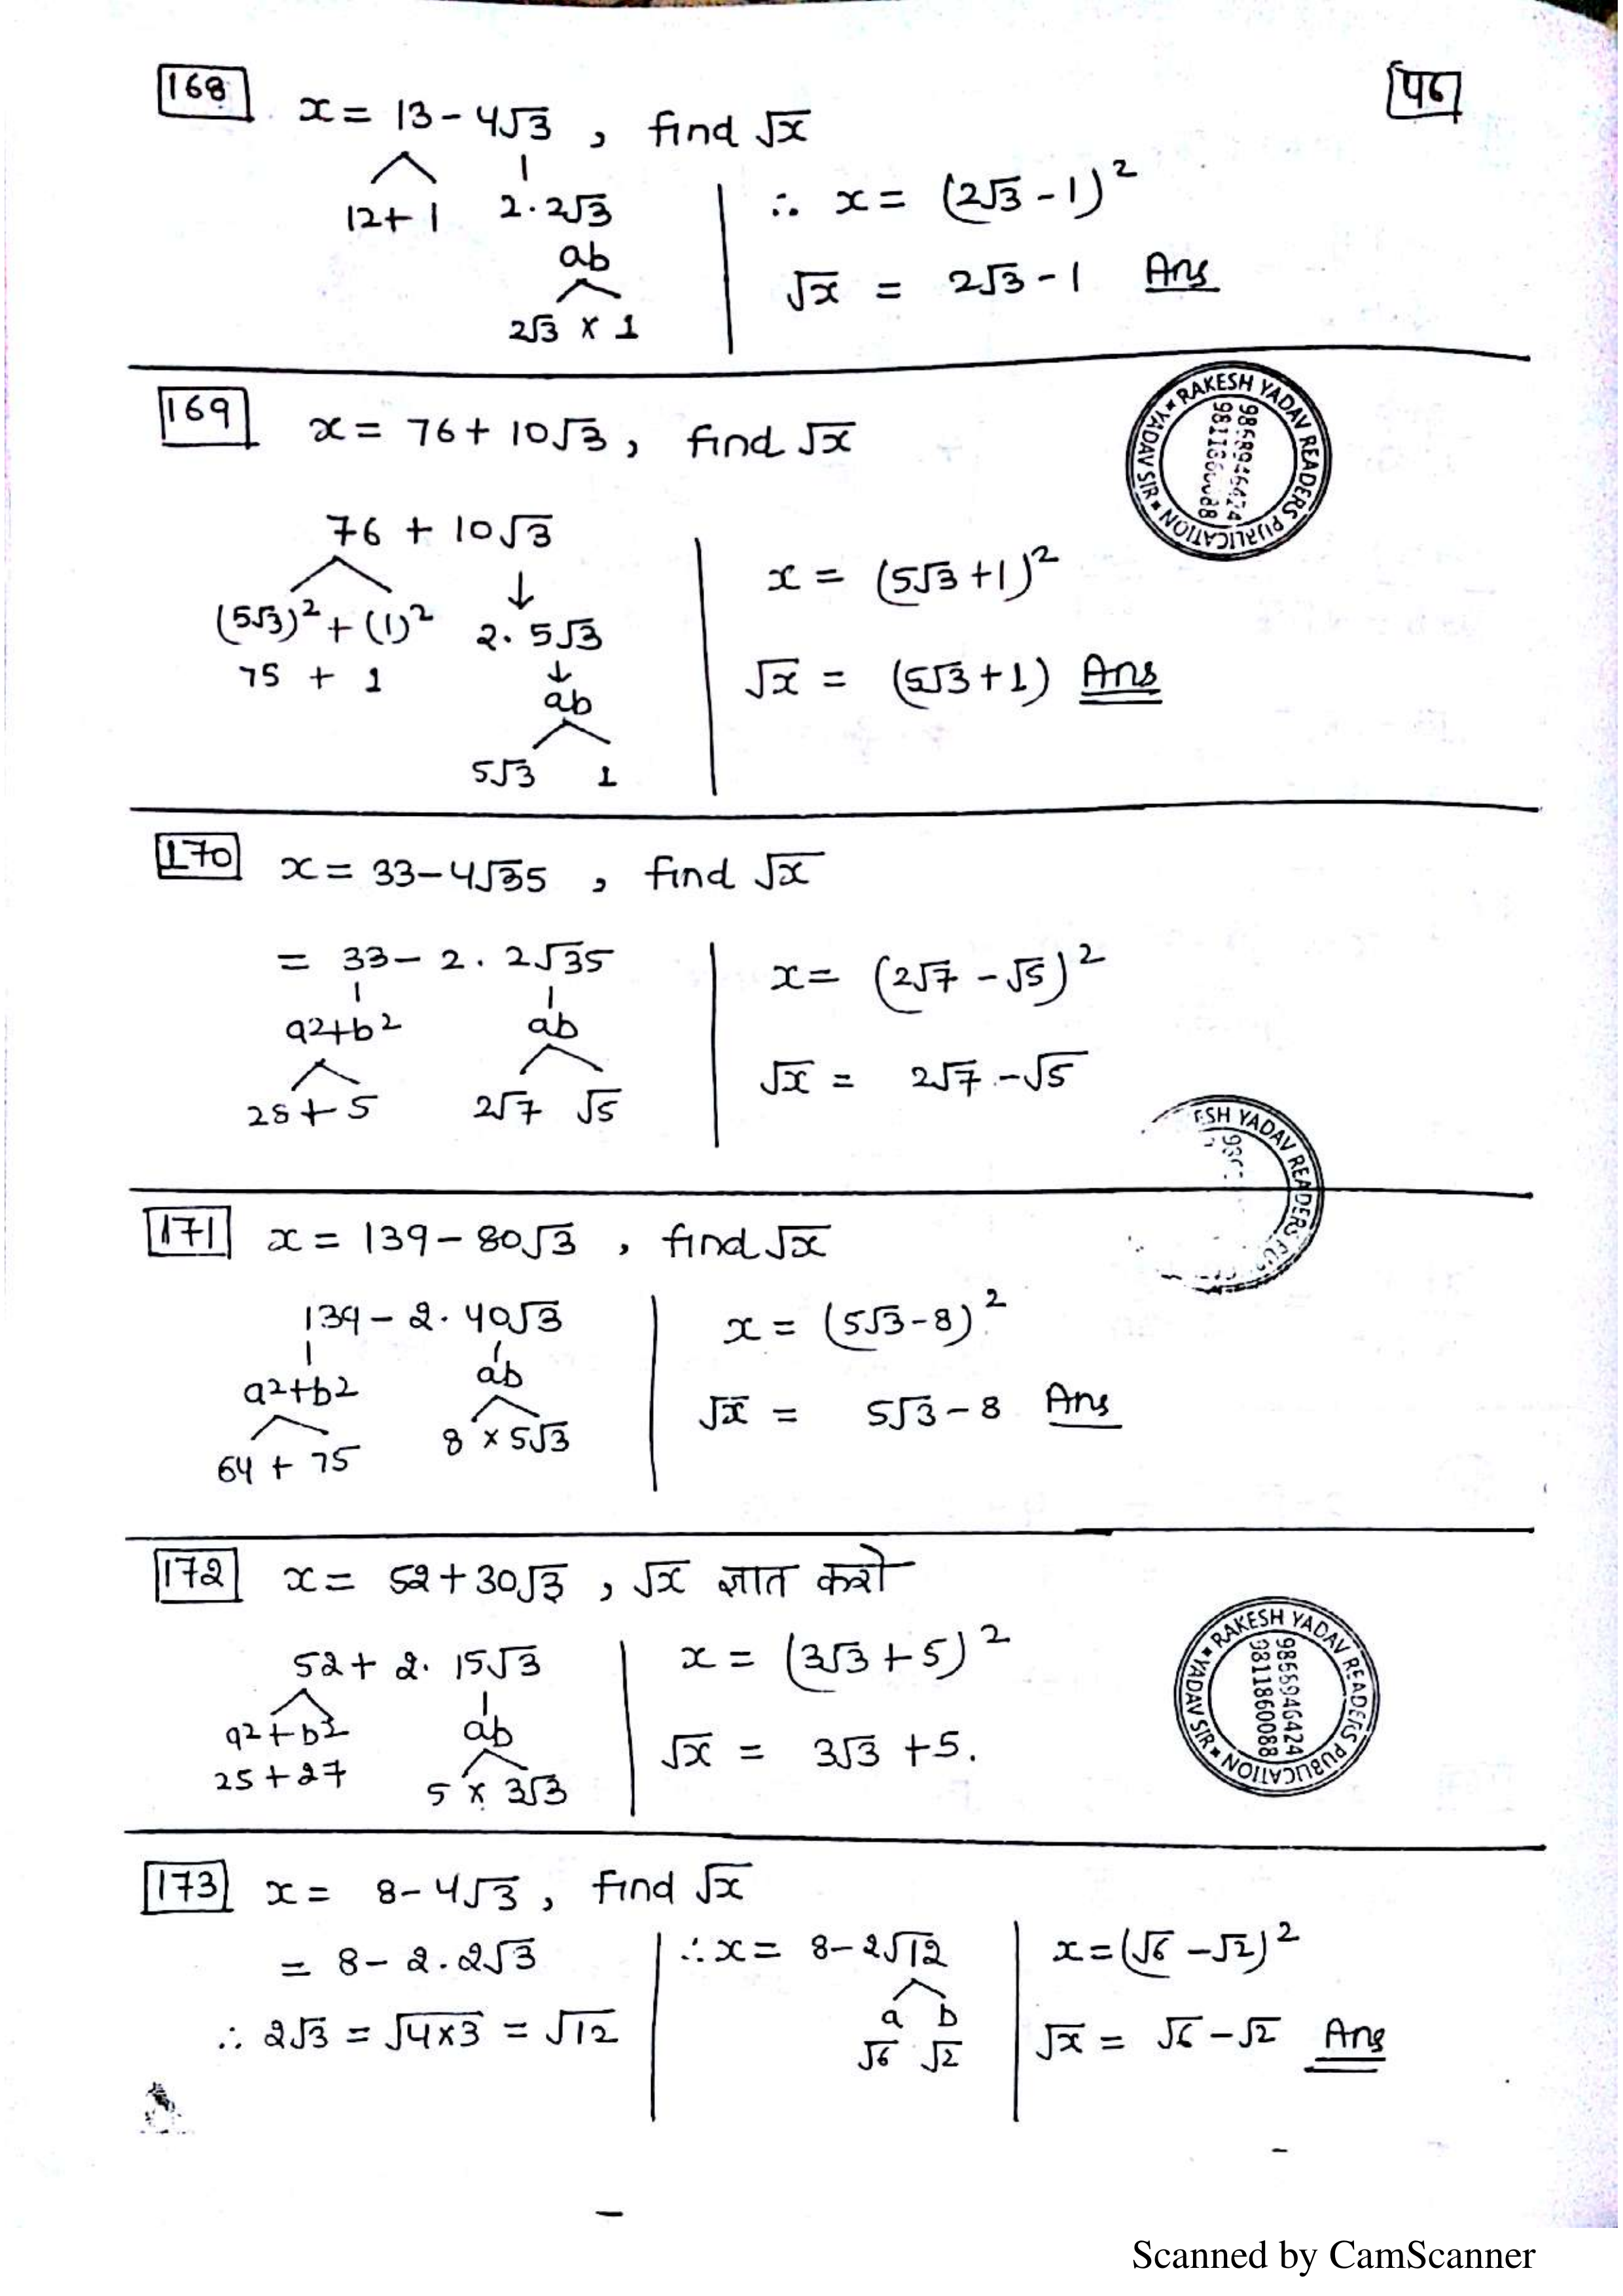 168 x = 13 - 4√3 , find √x
46
12 + 1 2·2√3
ab
2√3 × 1
∴ x = (2√3 - 1)²
√x = 2√3 - 1 Ans
169 x = 76 + 10√3 , find √x
RAKESH YADAV READERS PUBLICATION YADAV SIR
76 + 10√3
(5√3)² + (1)² 2· 5√3
75 + 1
ab
5√3 1
x = (5√3 + 1)²
√x = (5√3 + 1) Ans
170 x = 33 - 4√35 , find √x
= 33 - 2 . 2√35
a2+b2 ab
28 + 5 2√7 √5
x = (2√7 - √5)²
√x = 2√7 - √5
ESH YADAV READERS
171 x = 139 - 80√3 , find √x
139 - 2· 40√3
a2+b2 ab
64 + 75 8 × 5√3
x = (5√3 - 8)²
√x = 5√3 - 8 Ans
172 x = 52 + 30√3 , √x ज्ञात करो
52 + 2· 15√3
a2+b2 ab
25 + 27 5 × 3√3
x = (3√3 + 5)²
√x = 3√3 + 5.
RAKESH YADAV READERS PUBLICATION YADAV SIR
9868946424
9811860088
173 x = 8 - 4√3 , find √x
= 8 - 2·2√3
∴ 2√3 = √4×3 = √12
∴ x = 8 - 2√12
a b
√6 √2
x = (√6 - √2)²
√x = √6 - √2 Ans
Scanned by CamScanner